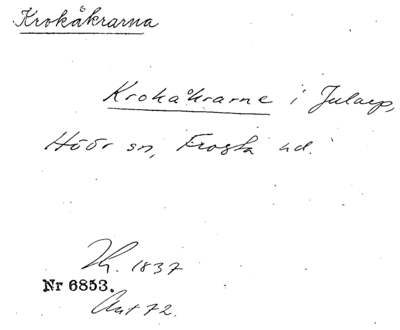 Krokåkrarna
Krokåkrarne i Jularp,
Höör sn, Frosta hd.
1837
Nr 6853.
Akt 72.